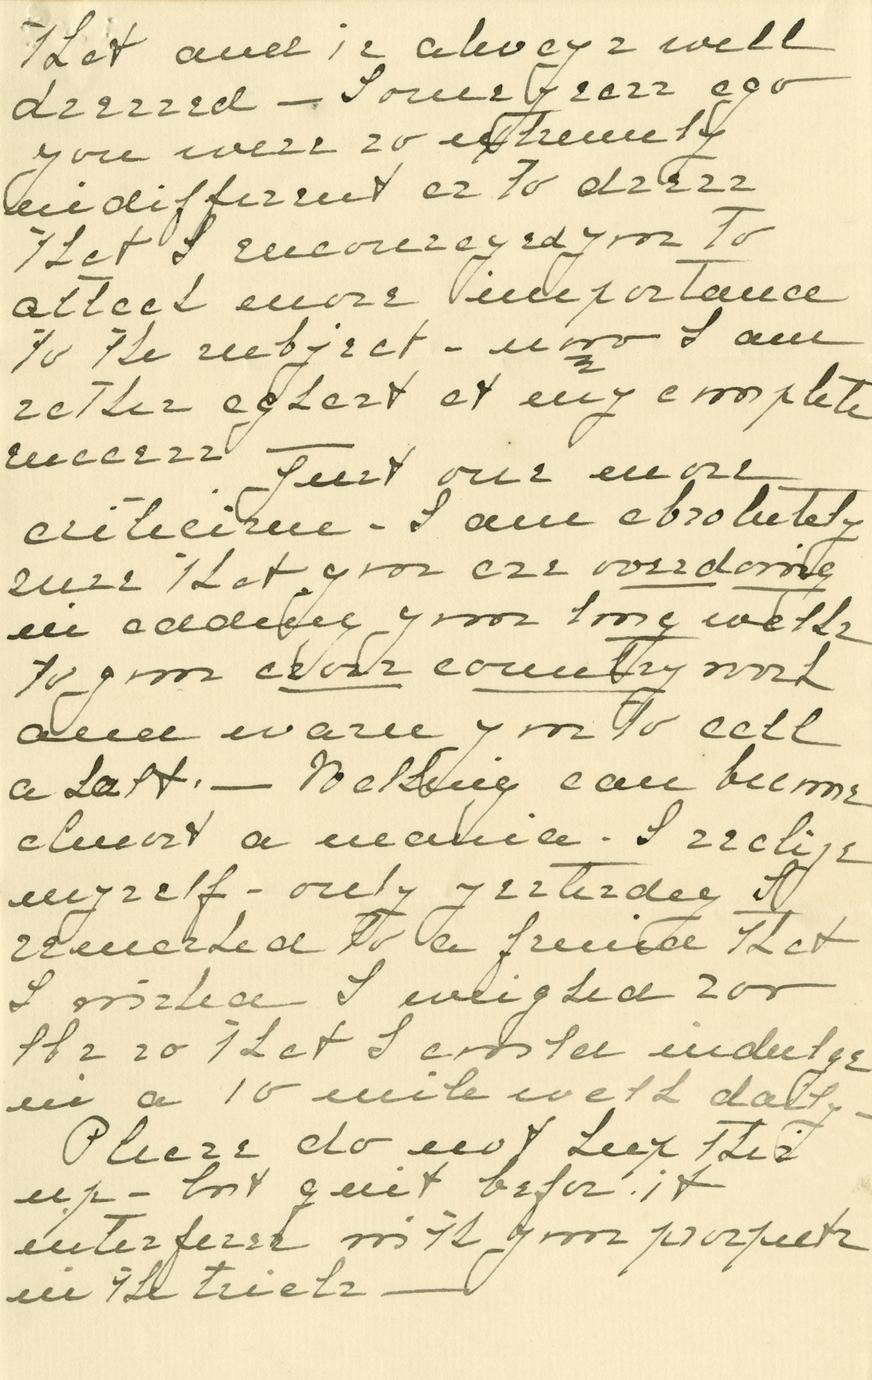 that and is always well
dressed — Some years ago
you were so extremely
indifferent as to dress
that I encouraged you to
attach more importance
to the subject - now I am
rather aghast at my complete
success — Just one more
criticism - I am absolutely
sure that you are overdoing
in adding your long walks
to your cross country work
and warn you to call
a halt. — Walking can become
almost a mania. I realize
myself - only yesterday I
remarked to a friend that
I wished I weighed 200
lbs so that I could indulge
in a 10 mile walk daily -
Please do not keep this
up - but quit before it
interferes with your prospects
in the trials —